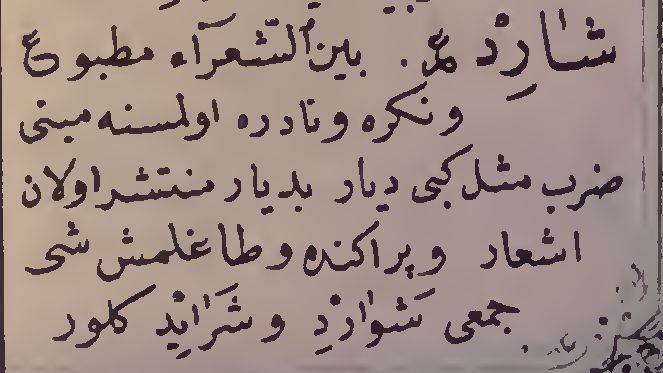 شَارِدْ ع . بين الشّعرآء مطبوع
و نكره و نادره اولمسنه مبنى
ضرب مثل كبى ديار بديار منتشر اولان
اشعار و پراكنده و طاغلمش شى
جمعى شَوَارِدِ و شَرَايِدِ كلور